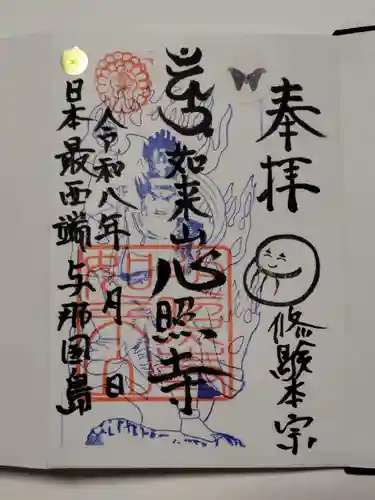 奉拝
修験本宗
如来山心照寺
令和八年 月 日
日本最西端 与那国島